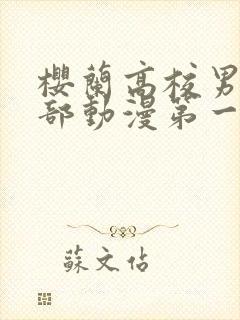 櫻蘭高校男
部動漫第一
蘇文佔